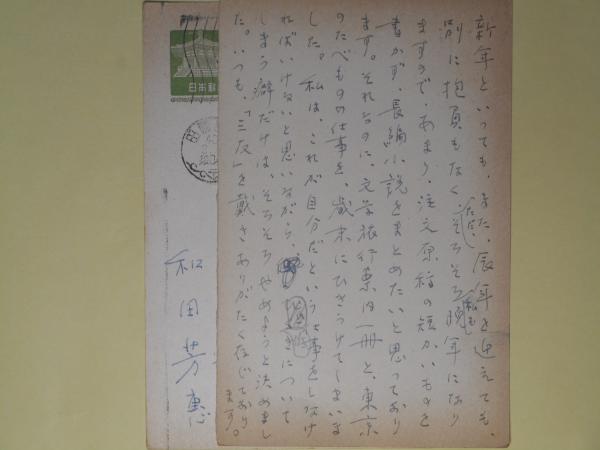 新年といっても、また、辰年を迎えても、
別に抱負もなく、ただ、そろそろ晩年になり
ますので、あまり、注文原稿の短かいものを
書かず、長編小説をまとめたいと思っており
ます。それなのに、文学旅行案内一冊と、東京
のたべものの仕事を、歳末にひきうけてしまいま
した。私は、これが自分だという仕事をしなけ
ればいけないと思いながら、
しまう癖だけは、そろそろやめようと決めまし
た。いつも、「三友」を戴きありがたく存じており
ます。
日本郵
和田芳恵